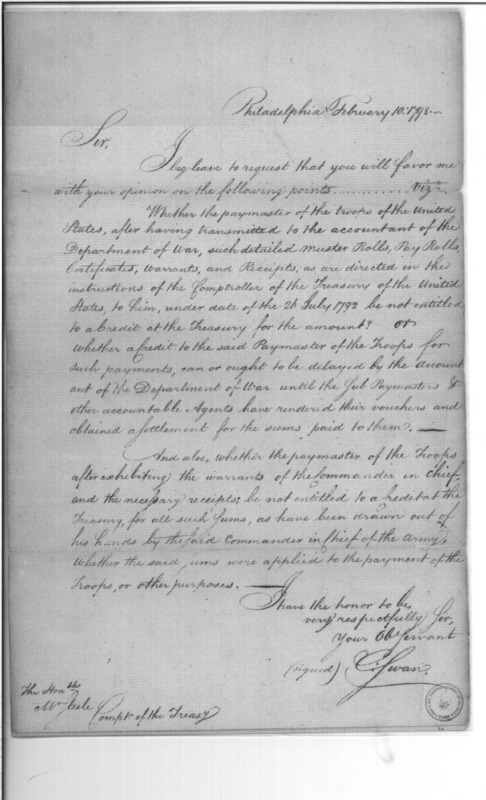 Philadelphia February 10. 1798.—
Sir,
I beg leave to request that you will favor me
with your opinion on the following points ............ Vizt
Whether the paymaster of the troops of the United
States, after having transmitted to the accountant of the
Department of War, such detailed Muster Rolls, Pay Rolls,
Certificates, Warrants, and Receipts, as are directed in the
instructions of the Comptroller of the Treasury of the United
States, to him, under date of the 26 July 1792 be not entitled
to a Credit at the Treasury for the amount? or
Whether a Credit to the said Paymaster of the Troops for
such payments, can or ought to be delayed by the Account
ant of the Department of War until the Sub Paymasters &
other accountable Agents have rendered their vouchers and
obtained a settlement for the sums paid to them. —
And also, whether the paymaster of the Troops
after exhibiting the warrants of the Commander in Chief,
and the necessary receipts; be not entitled to a Credit at the
Treasury, for all such sums, as have been drawn out of
his hands by the said Commander in Chief of the Army;
Whether the said sums were applied to the payment of the
Troops, or other purposes. —
I have the honor to be,
very respectfully Sir,
Your Obt Servant
(signed) C. Swan.
The Honble
Mr Steele
Compt. of the Treasy